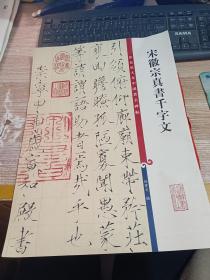 宋徽宗真書千字文
引領俯仰廊廟束帶矜莊
徘徊瞻眺孤陋寡聞愚蒙
等誚謂語助者焉哉乎也
崇寧甲申歲宣和殿書